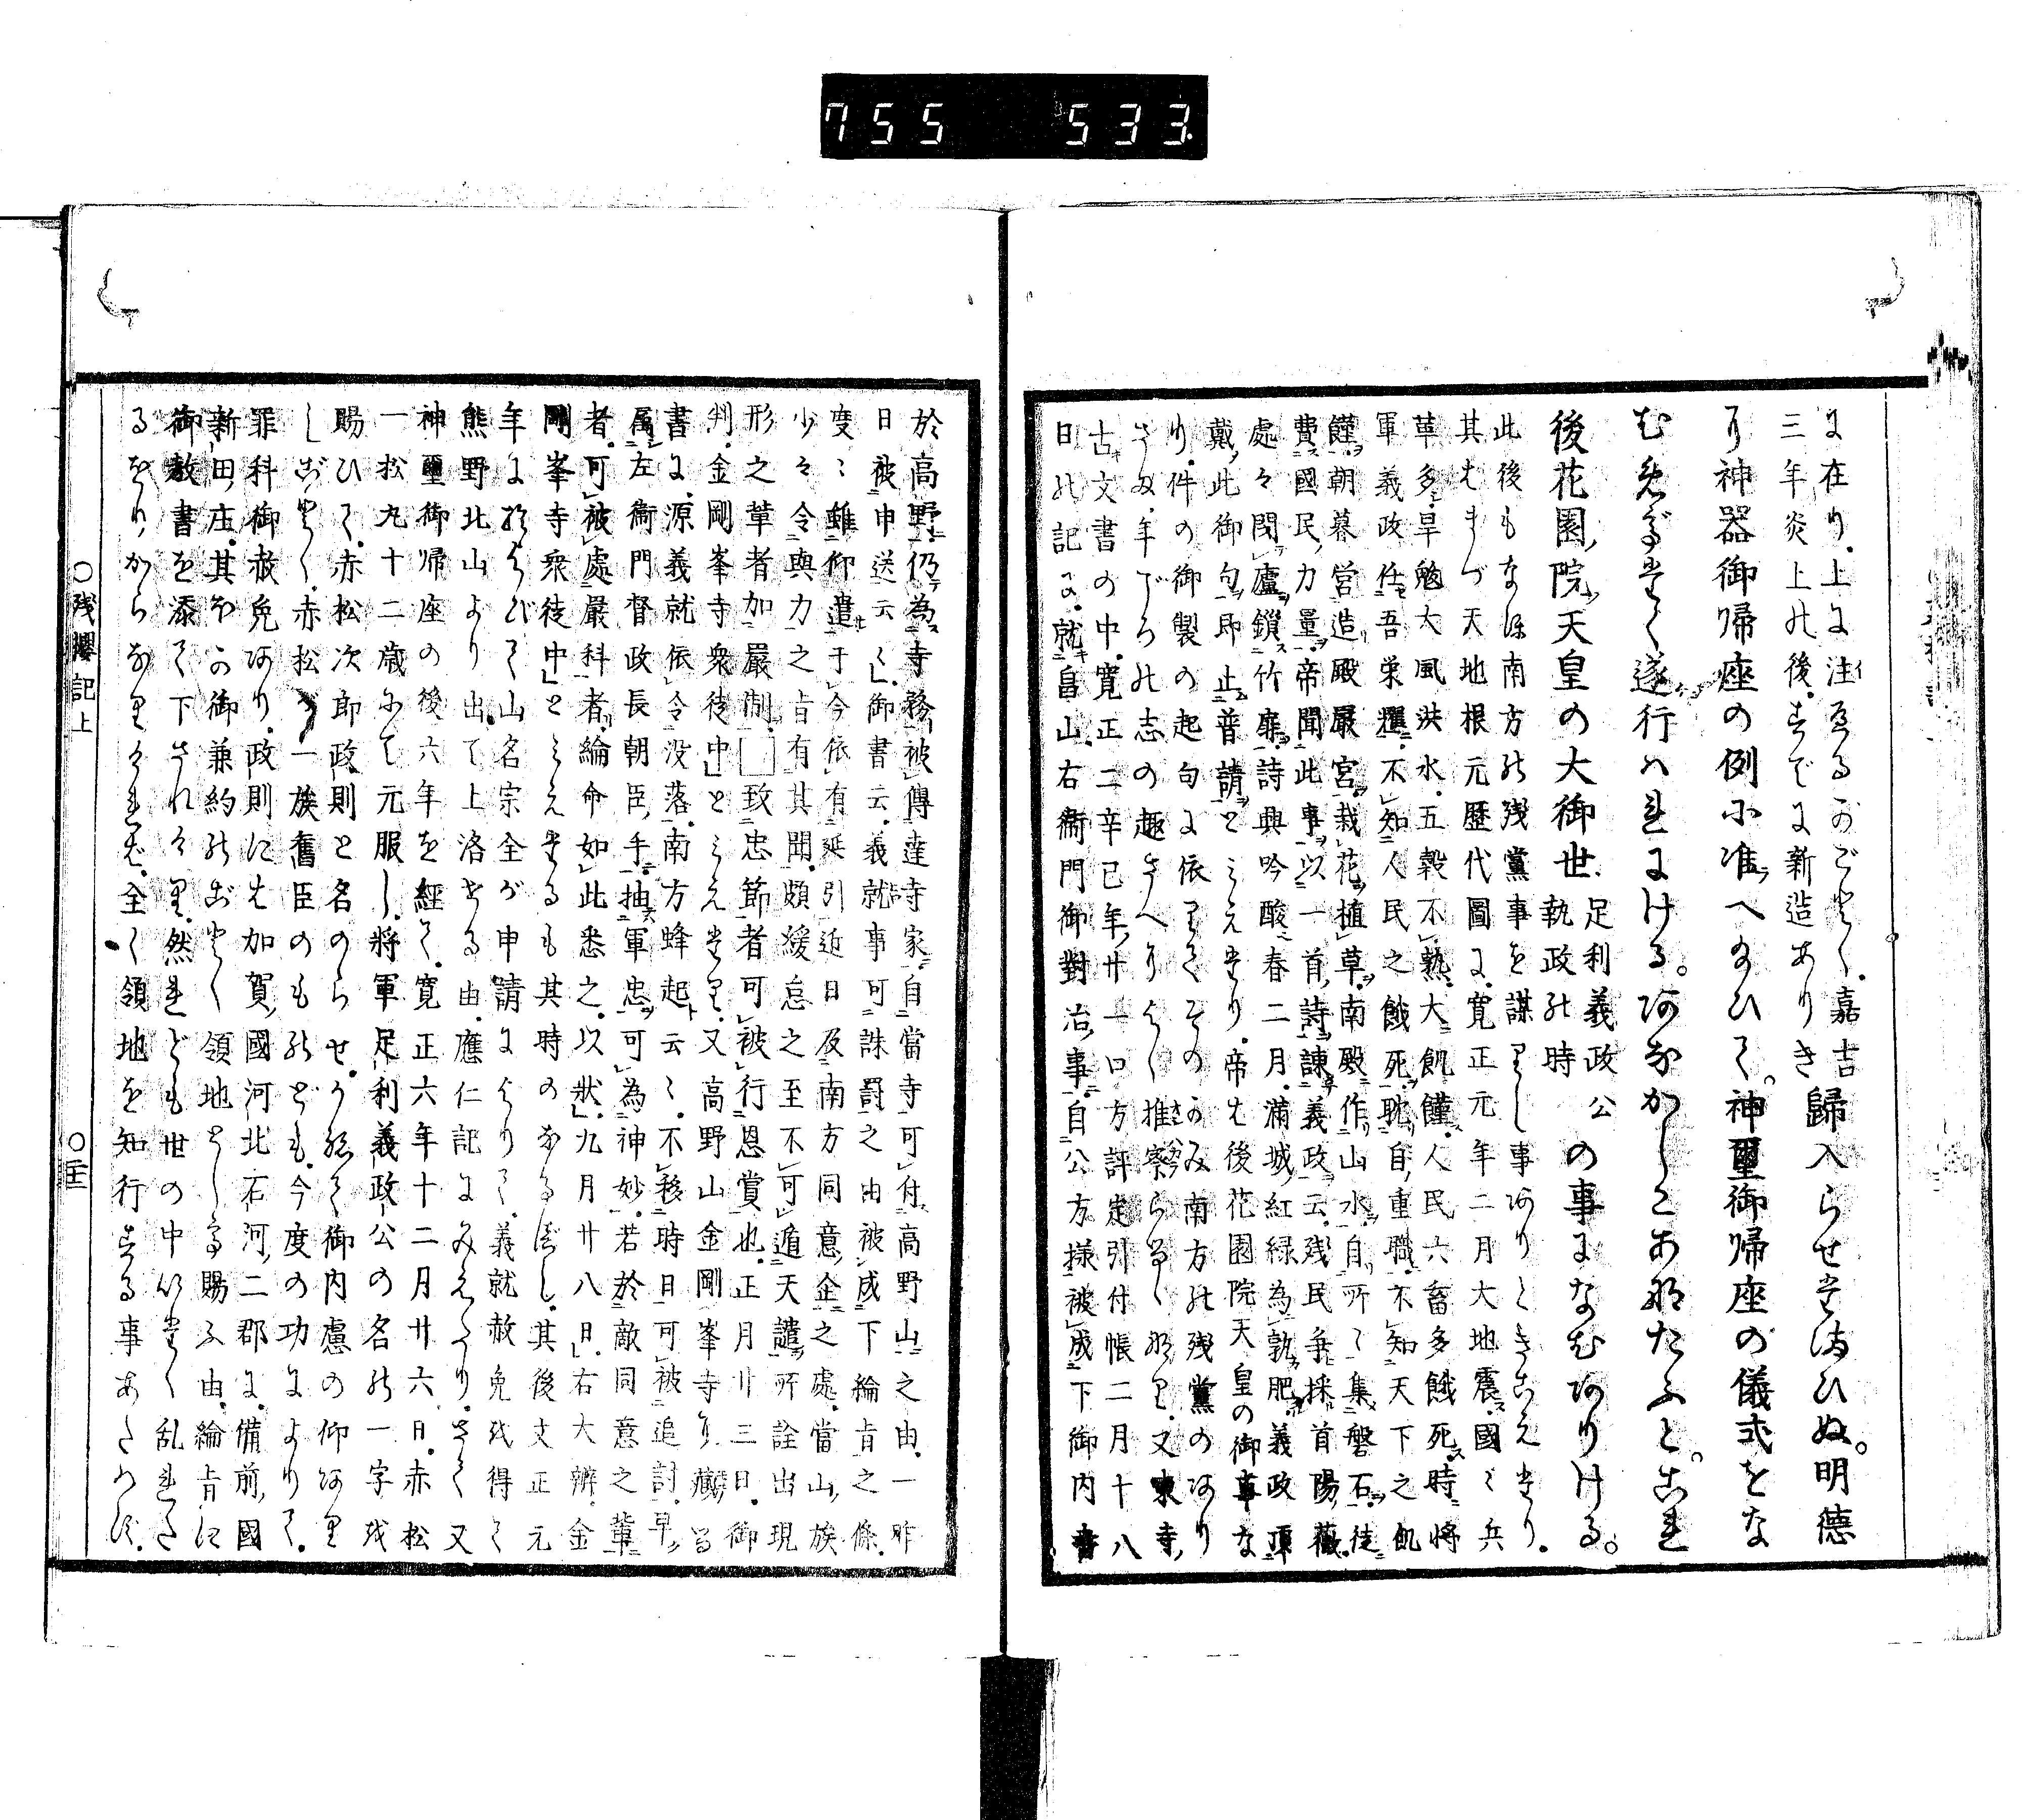 755 533
に在り、上に注るがごとく、嘉吉
三年炎上の後、すでに新造ありき
歸入らせたまひぬ。明德
神器御帰座の例に准へたまひて、神璽御帰座の儀式をな
遂行はれにける。あなかしこあなたふと。これ
後花園院天皇の大御世
足利義政公
執政の時
の事になむありける。
此後もなほ南方の残黨事を謀りし事ありときこえたり。
其はまづ天地根元歴代圖に、寛正元年二月大地震、國々兵
革多、旱魃大風洪水、五穀不熟、大飢饉、人民六畜多餓死時將
軍義政任吾栄耀、不知人民之餓死、耽自重職、不知天下之飢
饉、朝暮営造殿嚴宮、栽花植草、南殿作山水、自所々集磐石、徒
費國民力量、帝聞此事、以一首詩諫義政云、残民争採首陽薇、
處々閉廬鎖竹扉、詩興吟酸春二月、滿城紅緑為孰肥、義政頂
戴此御句、即止普請とみえたり、帝は後花園院天皇の御事な
り、件の御製の起句に依りてそのかみ南方の残黨のあり
さま、年ごろの志の趣さへりよく推察らるゝなり、又東寺
古文書の中、寛正二辛巳年、廿一口方評定引付帳二月十八
日の記に、就畠山右衞門御對治事、自公方様被成下御内書
於高野、仍為寺務被傳達寺家、自當寺可付高野山之由、一昨
日被申送云々、御書云、義就事可誅罰之由被成下綸旨之條、
度々雖仰遣于今依有延引、近日及南方同意企之處、當山族
少々令與力之旨有其聞、頗緩怠之至不可遁天譴、所詮出現
形之草者加嚴制□致忠節者可被行恩賞也、正月廿三日、御
判、金剛峯寺衆徒中とみえたり、又高野山金剛峯寺に藏る
書に、源義就依令没落、南方蜂起云々、不移時日可被追討、早
属左衞門督政長朝臣手、抽軍忠可為神妙、若於敵同意之輩
者、可被處嚴科者、綸命如此悉之、以狀、九月廿八日、右大辨、金
剛峯寺衆徒中とみえたるも其時のなるべし、其後文正元
年におよびて山名宗全が申請によりて、義就赦免を得て
熊野北山より出て上洛せる由、應仁記にみえたり、さて又
神璽御帰座の後六年を經て、寛正六年十二月廿六日、赤松
一松九十二歳にて元服し、將軍足利義政公の名の一字を
賜ひて、赤松次郎政則と名のらせ、かねて御内慮の仰あり
しごとく、赤松が一族舊臣のものども、今度の功によりて、
罪科御赦免あり、政則には加賀國河北石河二郡に、備前國
新田庄、其外の御兼約のごとく領地をし賜ふ由、綸旨に
御教書を添て下されけり、然れども世の中いたく乱れた
るをり、からなりければ、全く領地を知行する事あたはず、
○残櫻記上